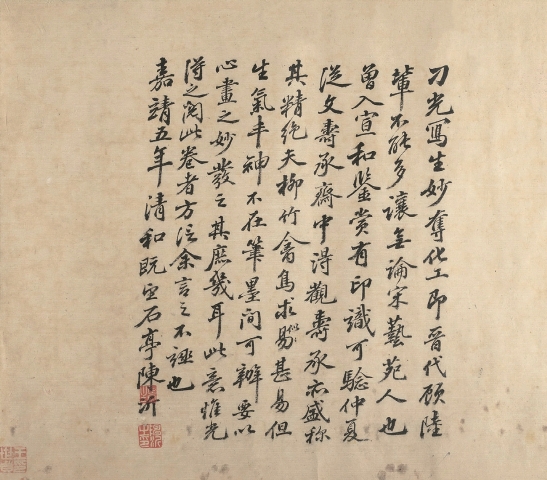 刁光寫生妙奪化工即晉代顧陸
輩不能多讓無論宋藝苑人也
曾入宣和鑒賞有印識可驗仲夏
從文壽承齋中得觀壽承亦盛稱
其精絕夫柳竹禽鳥求似易甚易但
生氣丰神不在筆墨間可辦要以
心畫之妙發之其庶幾耳此意惟光
得之閱此卷者方信余言之不謬也
嘉靖五年清和既望石亭陳沂